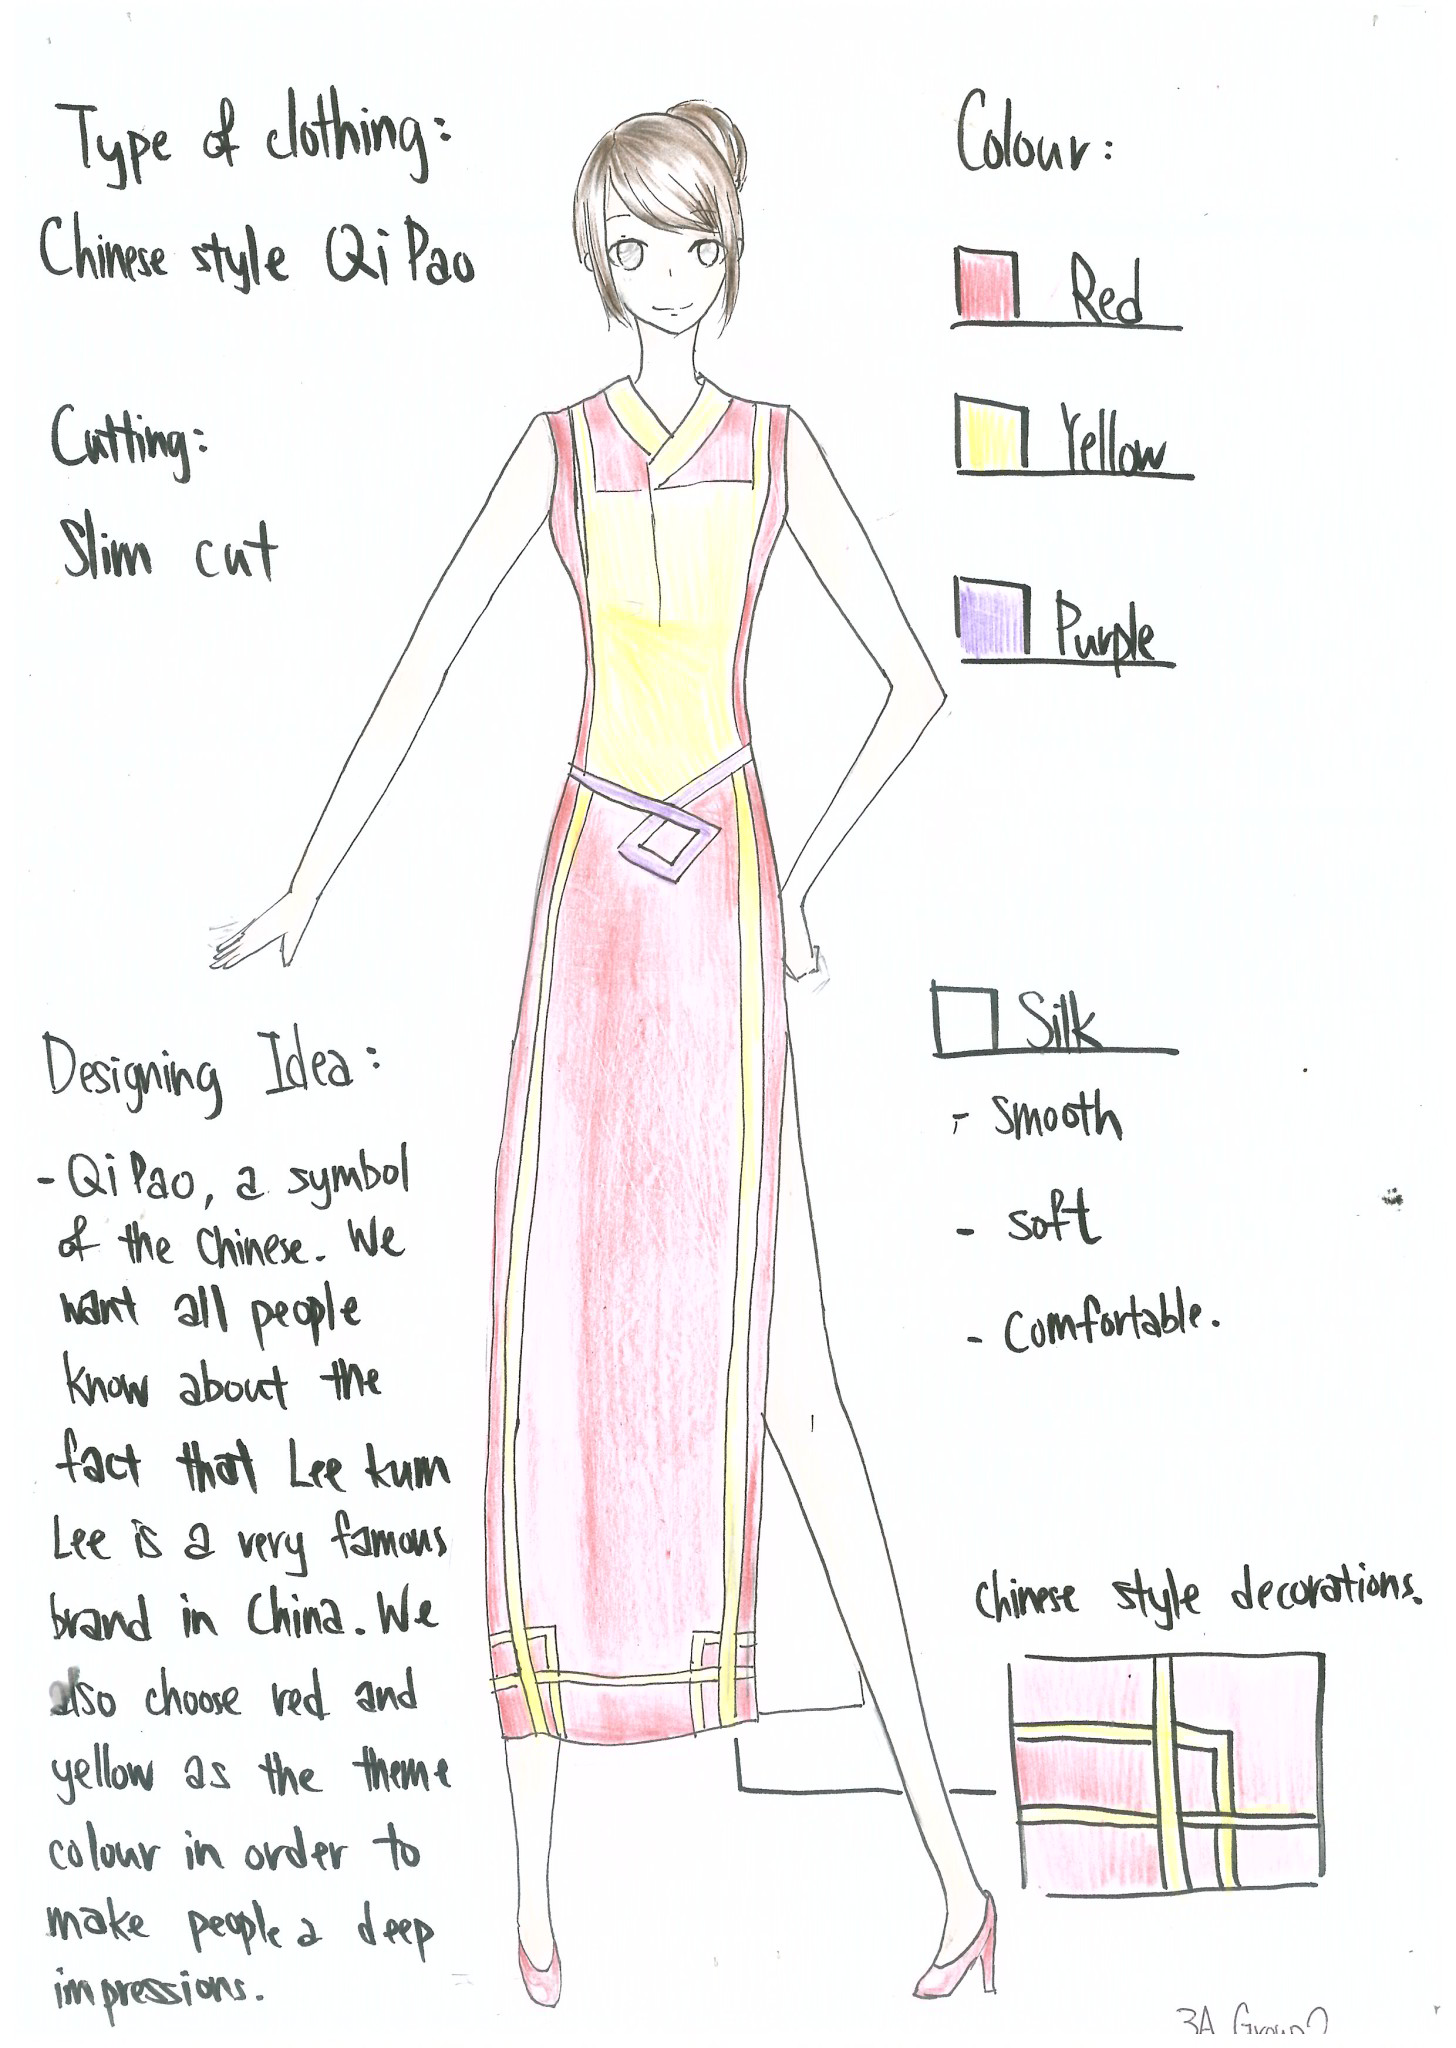 Type of clothing:
Chinese style Qi Pao
Cutting:
Slim cut
Designing Idea:
- Qi Pao, a symbol
of the Chinese. We
want all people
know about the
fact that Lee kum
Lee is a very famous
brand in China. We
also choose red and
yellow as the theme
colour in order to
make people a deep
impressions.
Colour:
Red
Yellow
Purple
Silk
- smooth
- soft
- comfortable.
Chinese style decorations.
3A Group 2